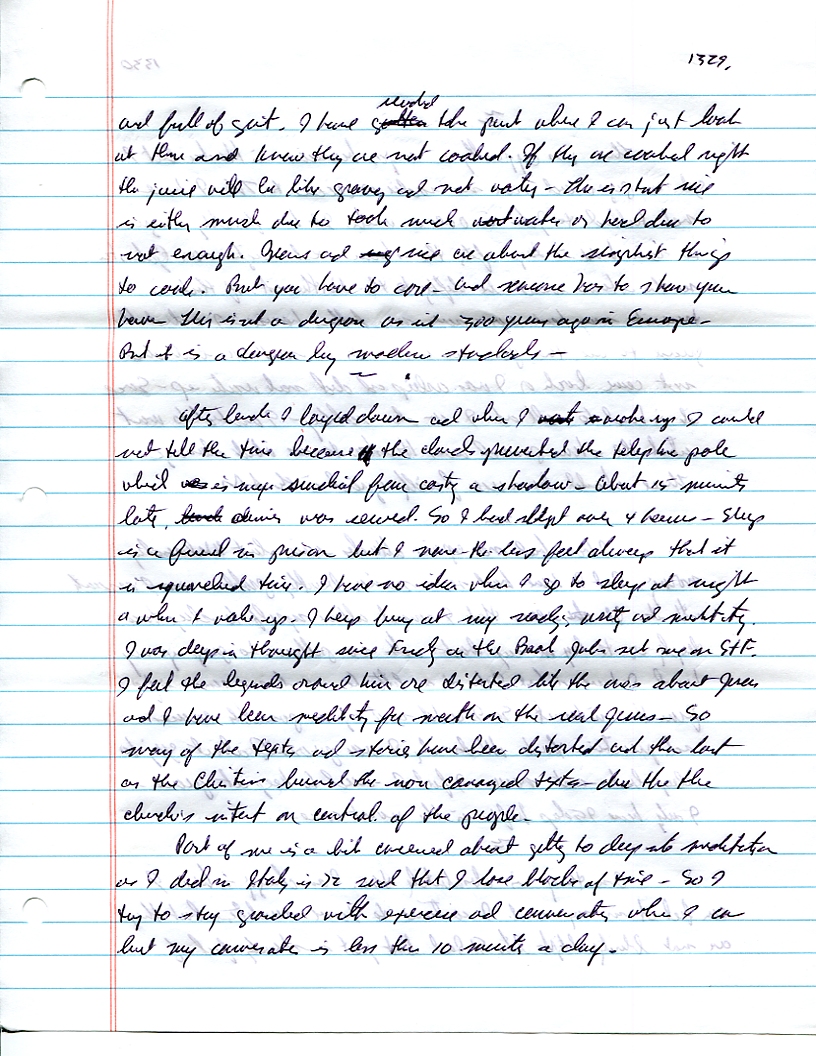 1329,
and full of grit. I have reached the point where I can just look
at them and know they are not cooked. If they are cooked right
the juice will be like gravy and not watery - the rice
is either much due to much water or hard due to
not enough. Beans and rice are about the simplest things
to cook. But you have to care - and someone has to show you
how. This is not a dungeon as in 300 years ago in Europe -
But it is a dungeon by modern standards -
After lunch I layed down and when I woke up I could
not tell the time because the clouds prevented the telephone pole
which is my sundial from casting a shadow - about 15 minutes
later, dinner was served. So I had slept over 4 hours - Sleep
is a friend in prison but I none-the-less feel always that it
is squandered time. I have no idea when I go to sleep at night
or when I wake up. I keep busy at my reading, writing and meditating.
I was deep in thought since Friday on the Baal
I feel the legends around him are distorted like the ones about Jesus
and I have been meditating for months on the real Jesus - So
many of the texts and stories have been distorted and then lost
as the Christians burned the non texts - due the the
church's intent on control of the people.
Part of me is a bit concerned about getting to deep into meditation
as I did in Italy in 72 such that I lose blocks of time - So I
try to stay grounded with exercise and conversation when I can
but my conversation is less then 10 minutes a day.